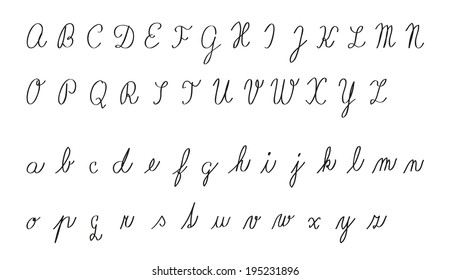 A B C D E F G H I J K L M N
O P Q R S T U V W X Y Z
a b c d e f g h i j k l m n
o p q r s t u v w x y z
shutterstock.com · 195231896